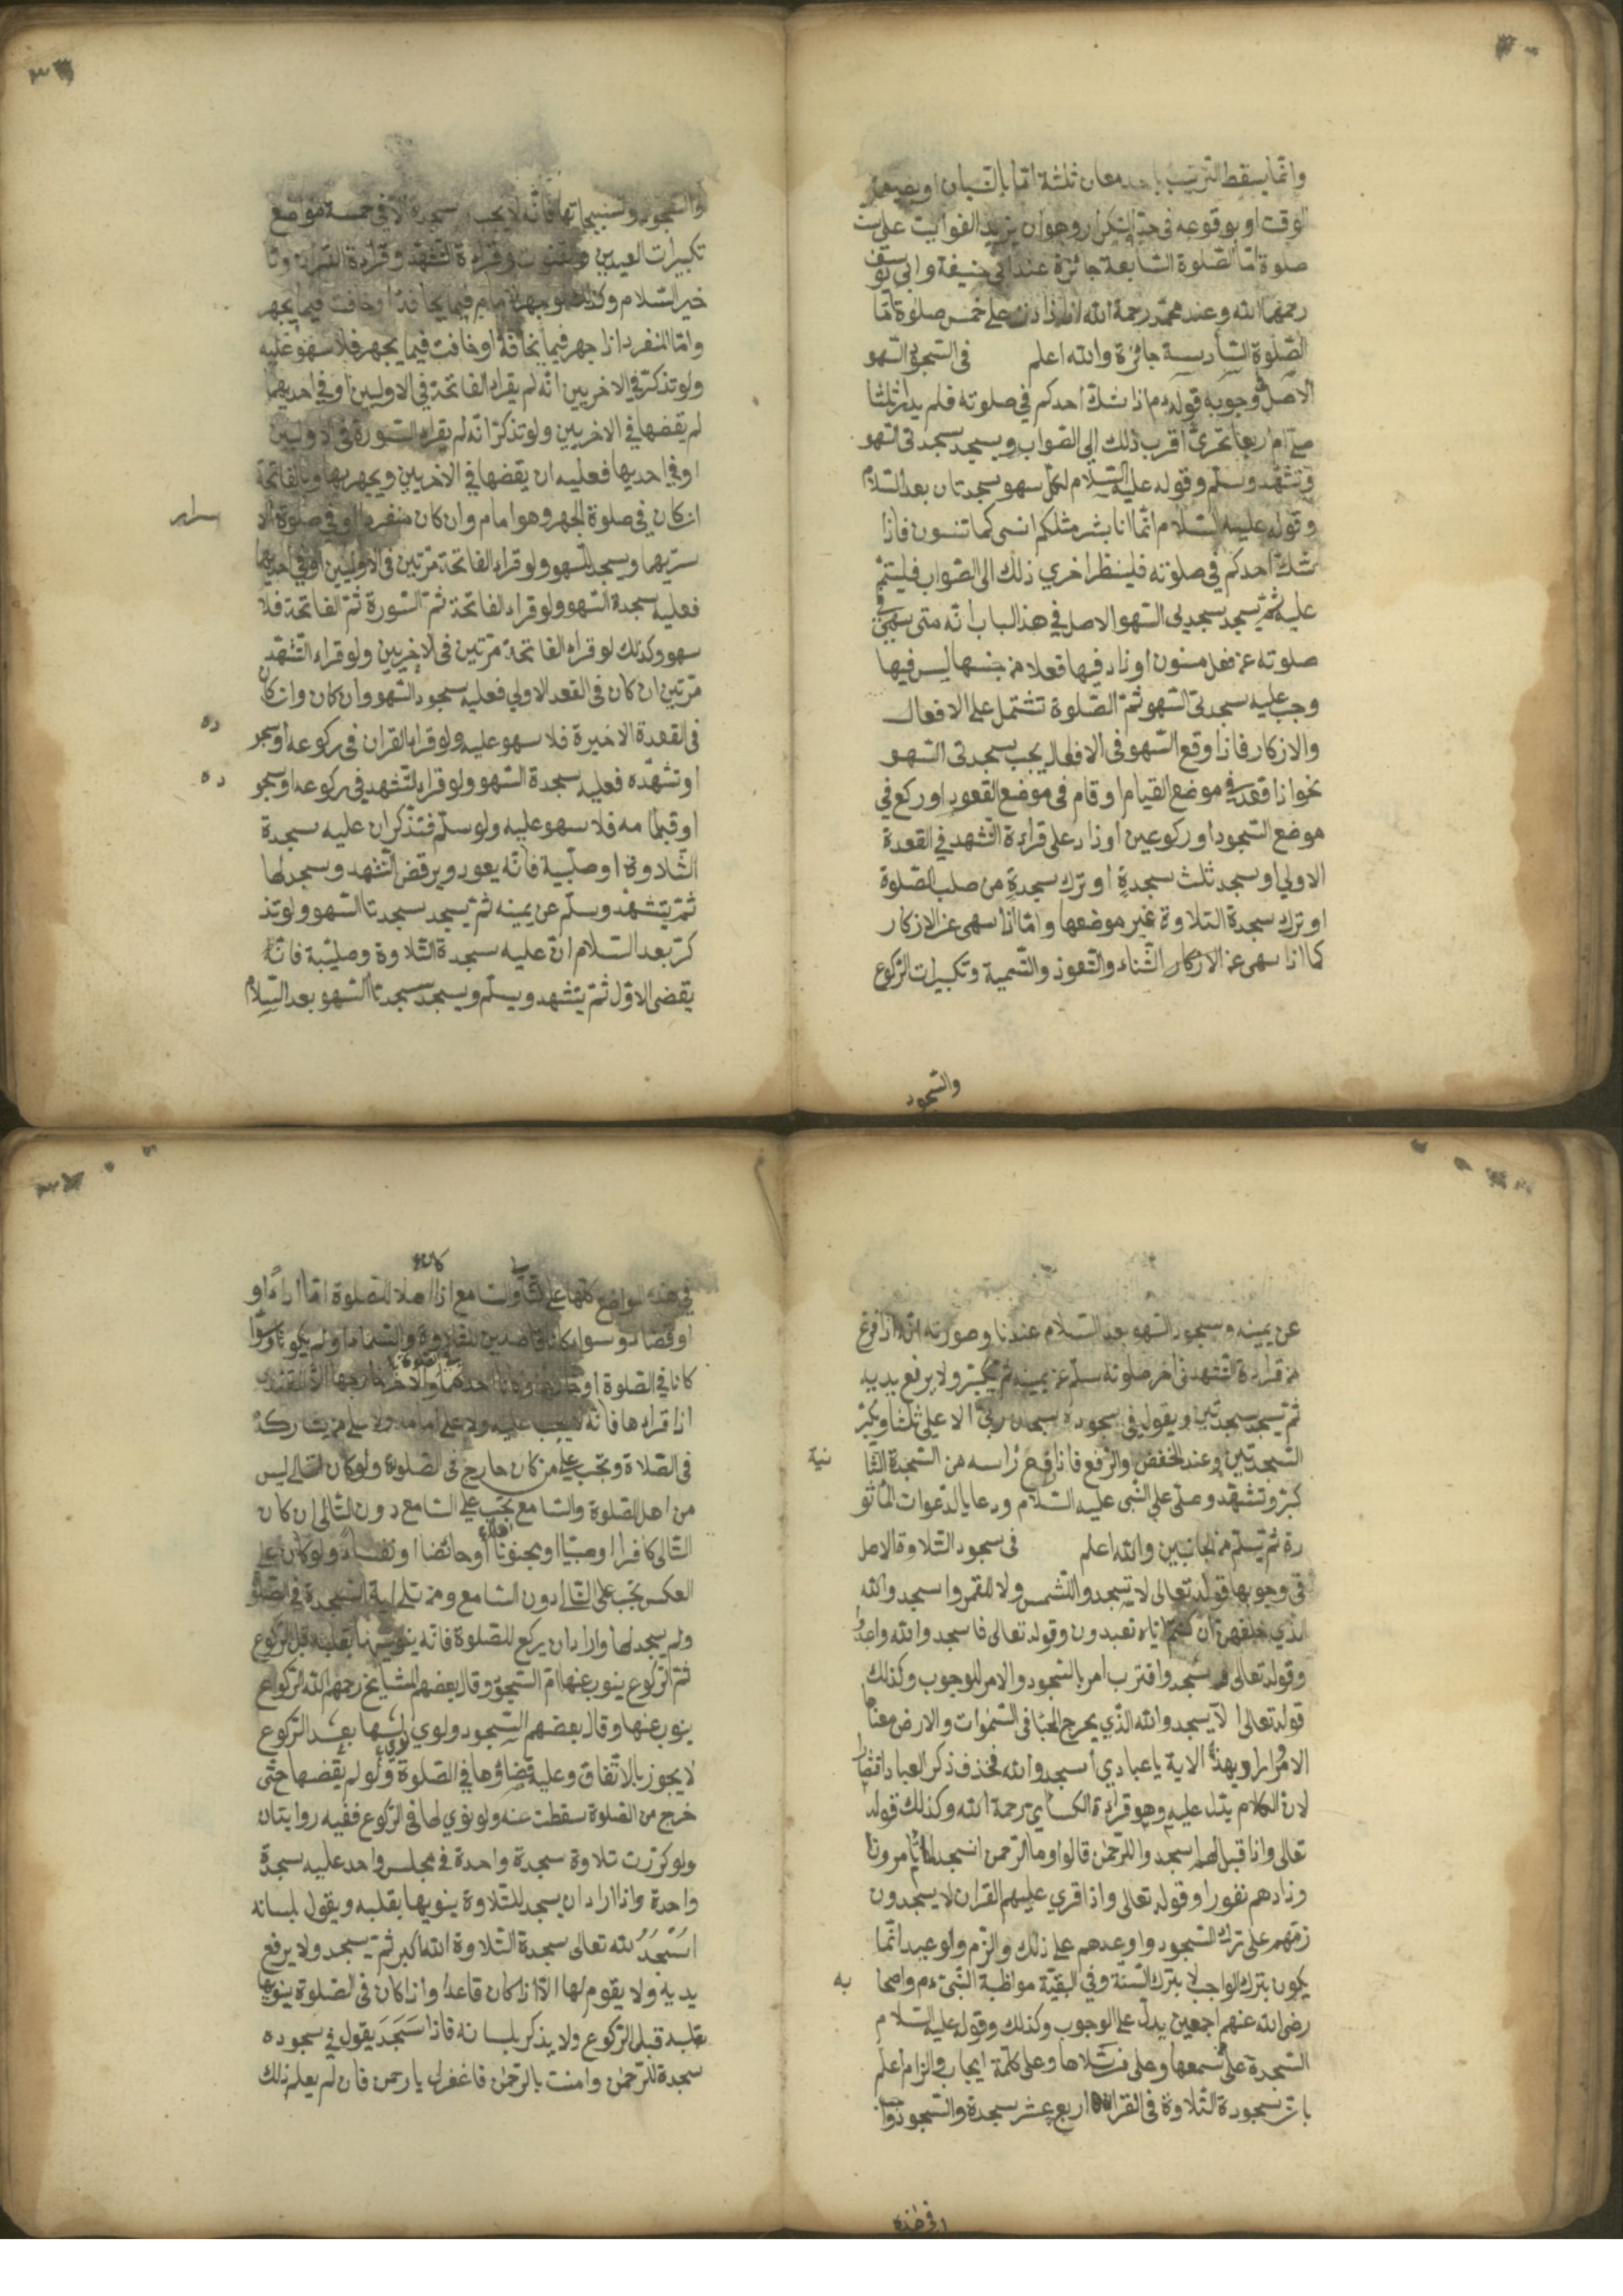 وانما يسقط الترتيب باحد معان ثلثة اما بالنسيان او بضيق
الوقت او بوقوعه في حد التكرار وهو ان يزيد الفوايت على ست
صلوة اما الصلوة السابعة جائزة عند ابي حنيفة وابي يوسف
رحمهما الله وعند محمد رحمة الله اذا زادت على خمس صلوة اما
الصلوة السادسة جائزة والله اعلم في السجود السهو
الاصل في وجوبه قوله ءم اذا شك احدكم في صلوته فلم يدر اثلثا
صلى ام اربعا تحرى اقرب ذلك الى الصواب ويسجد سجدتى السهو
وتشهد وسلم وقوله عليه السلام لكل سهو سجدتان بعد السلام
وقوله عليه السلام انما انا بشر مثلكم انسى كما تنسون فاذا
شك احدكم في صلوته فلينظر احري ذلك الى الصواب فليتم
عليه ثم يسجد سجدتى السهو الاصل في هذ الباب انه متى سهى في
صلوته عن فعل مسنون او زاد فيها فعلا من جنسها ليس فيها
وجب عليه سجدتى السهو ثم الصلوة تشتمل على الافعال
والازكار فاذا وقع السهو في الافعال يجب سجدتى السهو
نحو اذا قعد في موضع القيام او قام في موضع القعود او ركع في
موضع السجود او ركوعين او زاد على قراءة التشهد في القعدة
الاولي او سجد ثلث سجدة او ترك سجدة من صلب الصلوة
او ترك سجدة التلاوة غير موضعها واما اذا سهى عن الازكار
كما اذا سهى عن الازكار الثناء والتعوذ والتسمية وتكبيرات الركوع
والسجود
والسجود وتسبيحاتها فانه لا يجب سجدة الا في خمسة مواضع
تكبيرات العيدين والقنوت وقراءة التشهد وقراءة القران وتا
خير السلام وكذلك لو جهر الامام فيما يخافت او خافت فيما يجهر
واما المنفرد اذا جهر فيما يخافة او خافت فيما يجهر فلا سهو عليه
ولو تذكر في الاخريين انه لم يقراء الفاتحة في الاوليين او في احديهما
لم يقضها في الاخريين ولو تذكر انه لم يقراء السورة في الاوليين
او في احديها فعليه ان يقضها في الاخريين ويجهر بها وبالفاتحة
ان كان في صلوة الجهر وهو امام وان كان منفردا او في صلوة الا
سرار
سريهما ويسجد للسهو ولو قراء الفاتحة مرتين في الاوليين او في احديهما
فعليه سجدة السهو ولو قراء الفاتحة ثم السورة ثم الفاتحة فلا
سهو وكذلك لو قراء الفاتحة مرتين في الاخريين ولو قراء التشهد
مرتين ان كان في القعد الاولي فعليه سجود السهو وان كان وان كان
في القعدة الاخيرة فلا سهو عليه ولو قراء القران في ركوعه او سجو
ده
او تشهده فعليه سجدة السهو ولو قراء التشهد في ركوعه او سجو
ده
او قيامه فلا سهو عليه ولو سلم فتذكر ان عليه سجدة
التلاوة او صلبية فانه يعود ويرفض التشهد وسجد لها
ثم يتشهد وسلم عن يمينه ثم يسجد سجدتا السهو ولو تذ
كر بعد السلام ان عليه سجدة التلاوة وصلبية فانه
يقضى الاول ثم يتشهد ويسلم ويسجد سجدتا السهو بعد السلام
عن يمينه وسجود السهو بعد السلام عندنا وصورته انه اذا فرغ
من قراءة التشهد في اخر صلوته سلم عن يمينه ثم يكبر ولا يرفع يديه
ثم يسجد سجدتين ويقول في سجوده سبحان ربي الاعلى ثلثا ويكبر
السجدتين وعند الخفض والرفع فاذا رفع راسه من السجدة الثا
نية
كبر وتشهد وصلى على النبي عليه السلام ودعا بالدعوات المأثو
رة ثم يسلم من الجانبين والله اعلم في سجود التلاوة الاصل
في وجوبها قوله تعالى لا تسجدوا للشمس ولا للقمر واسجدوا لله
الذي خلقهن ان كنتم اياه تعبدون وقوله تعالى فاسجدوا لله واعبدوا
وقوله تعالى واسجد واقترب امر بالسجود والامر للوجوب وكذلك
قوله تعالى الا يسجدوا لله الذي يخرج الخبأ في السموات والارض معناه
الامر اراد بهذه الاية يا عبادي اسجدوا لله فحذف ذكر العباد اقتضارا
لان الكلام يدل عليه وهو قراءة الكسائي رحمة الله وكذلك قوله
تعالى واذا قيل لهم اسجدوا للرحمن قالوا وما الرحمن انسجد لما تامرونا
وزادهم نفورا وقوله تعالى واذا قري عليهم القران لا يسجدون
زمهم على ترك السجود واوعدهم على ذلك والزم والوعيد انما
يكون بترك الواجب لا بترك السنة وفي البقية مواظبة النبي ءم واصحا
به
رضي الله عنهم اجمعين يدل على الوجوب وكذلك وقوله عليه السلام
السجدة على من سمعها وعلى من تلاها وعلى كلمة ايجاب والزام اعلم
بان سجودة التلاوة في القران اربع عشر سجدة والسجود واجب
في هذه
في هذه المواضع كلها على التالي والسامع اذا اهلا للصلوة اما اداء او
او قضاء وسواء كانا قاصدين للتلاوة والسماع او لم يكونا وسواء
كانا في الصلوة او خارجها او احدهما والاخر خارجها الا المقتدي
اذا قراءها فانه لا يجب عليه ولا على امامه ولا على من يشاركه
في الصلاة وتجب على من كان خارج في الصلوة ولو كان التالي ليس
من اهل الصلوة والسامع يجب على السامع دون التالي ان كان
التالي كافرا او صبيا او مجنونا او حائضا او نفساء ولو كان على
العكس تجب على التالي دون السامع ومن تلى اية السجدة في الصلوة
ولم يسجد لها واراد ان يركع للصلوة فانه ينويها بقلبه قبل الركوع
ثم الركوع ينوب عنها ام السجود وقال بعضهم المشايخ رحمهم الله الركوع
ينوب عنها وقال بعضهم السجود ولو نوي لها بعد الركوع
لا يجوز بالاتفاق وعليه قضاؤها في الصلوة ولو لم يقضها حتى
خرج من الصلوة سقطت عنه ولو نوي لها في الركوع ففيه روايتان
ولو كررت تلاوة سجدة واحدة في مجلس واحد عليه سجدة
واحدة واذا اراد ان يسجد للتلاوة ينويها بقلبه ويقول بلسانه
اسجد لله تعالى سجدة التلاوة الله اكبر ثم يسجد ولا يرفع
يديه ولا يقوم لها الا اذا كان قاعدا واذا كان في الصلوة ينويها
بقلبه قبل الركوع ولا يذكر بلسانه فاذا سجد يقول في سجوده
سجدة للرحمن وامنت بالرحمن فاغفرلى يا رحمن فان لم يعلم ذلك